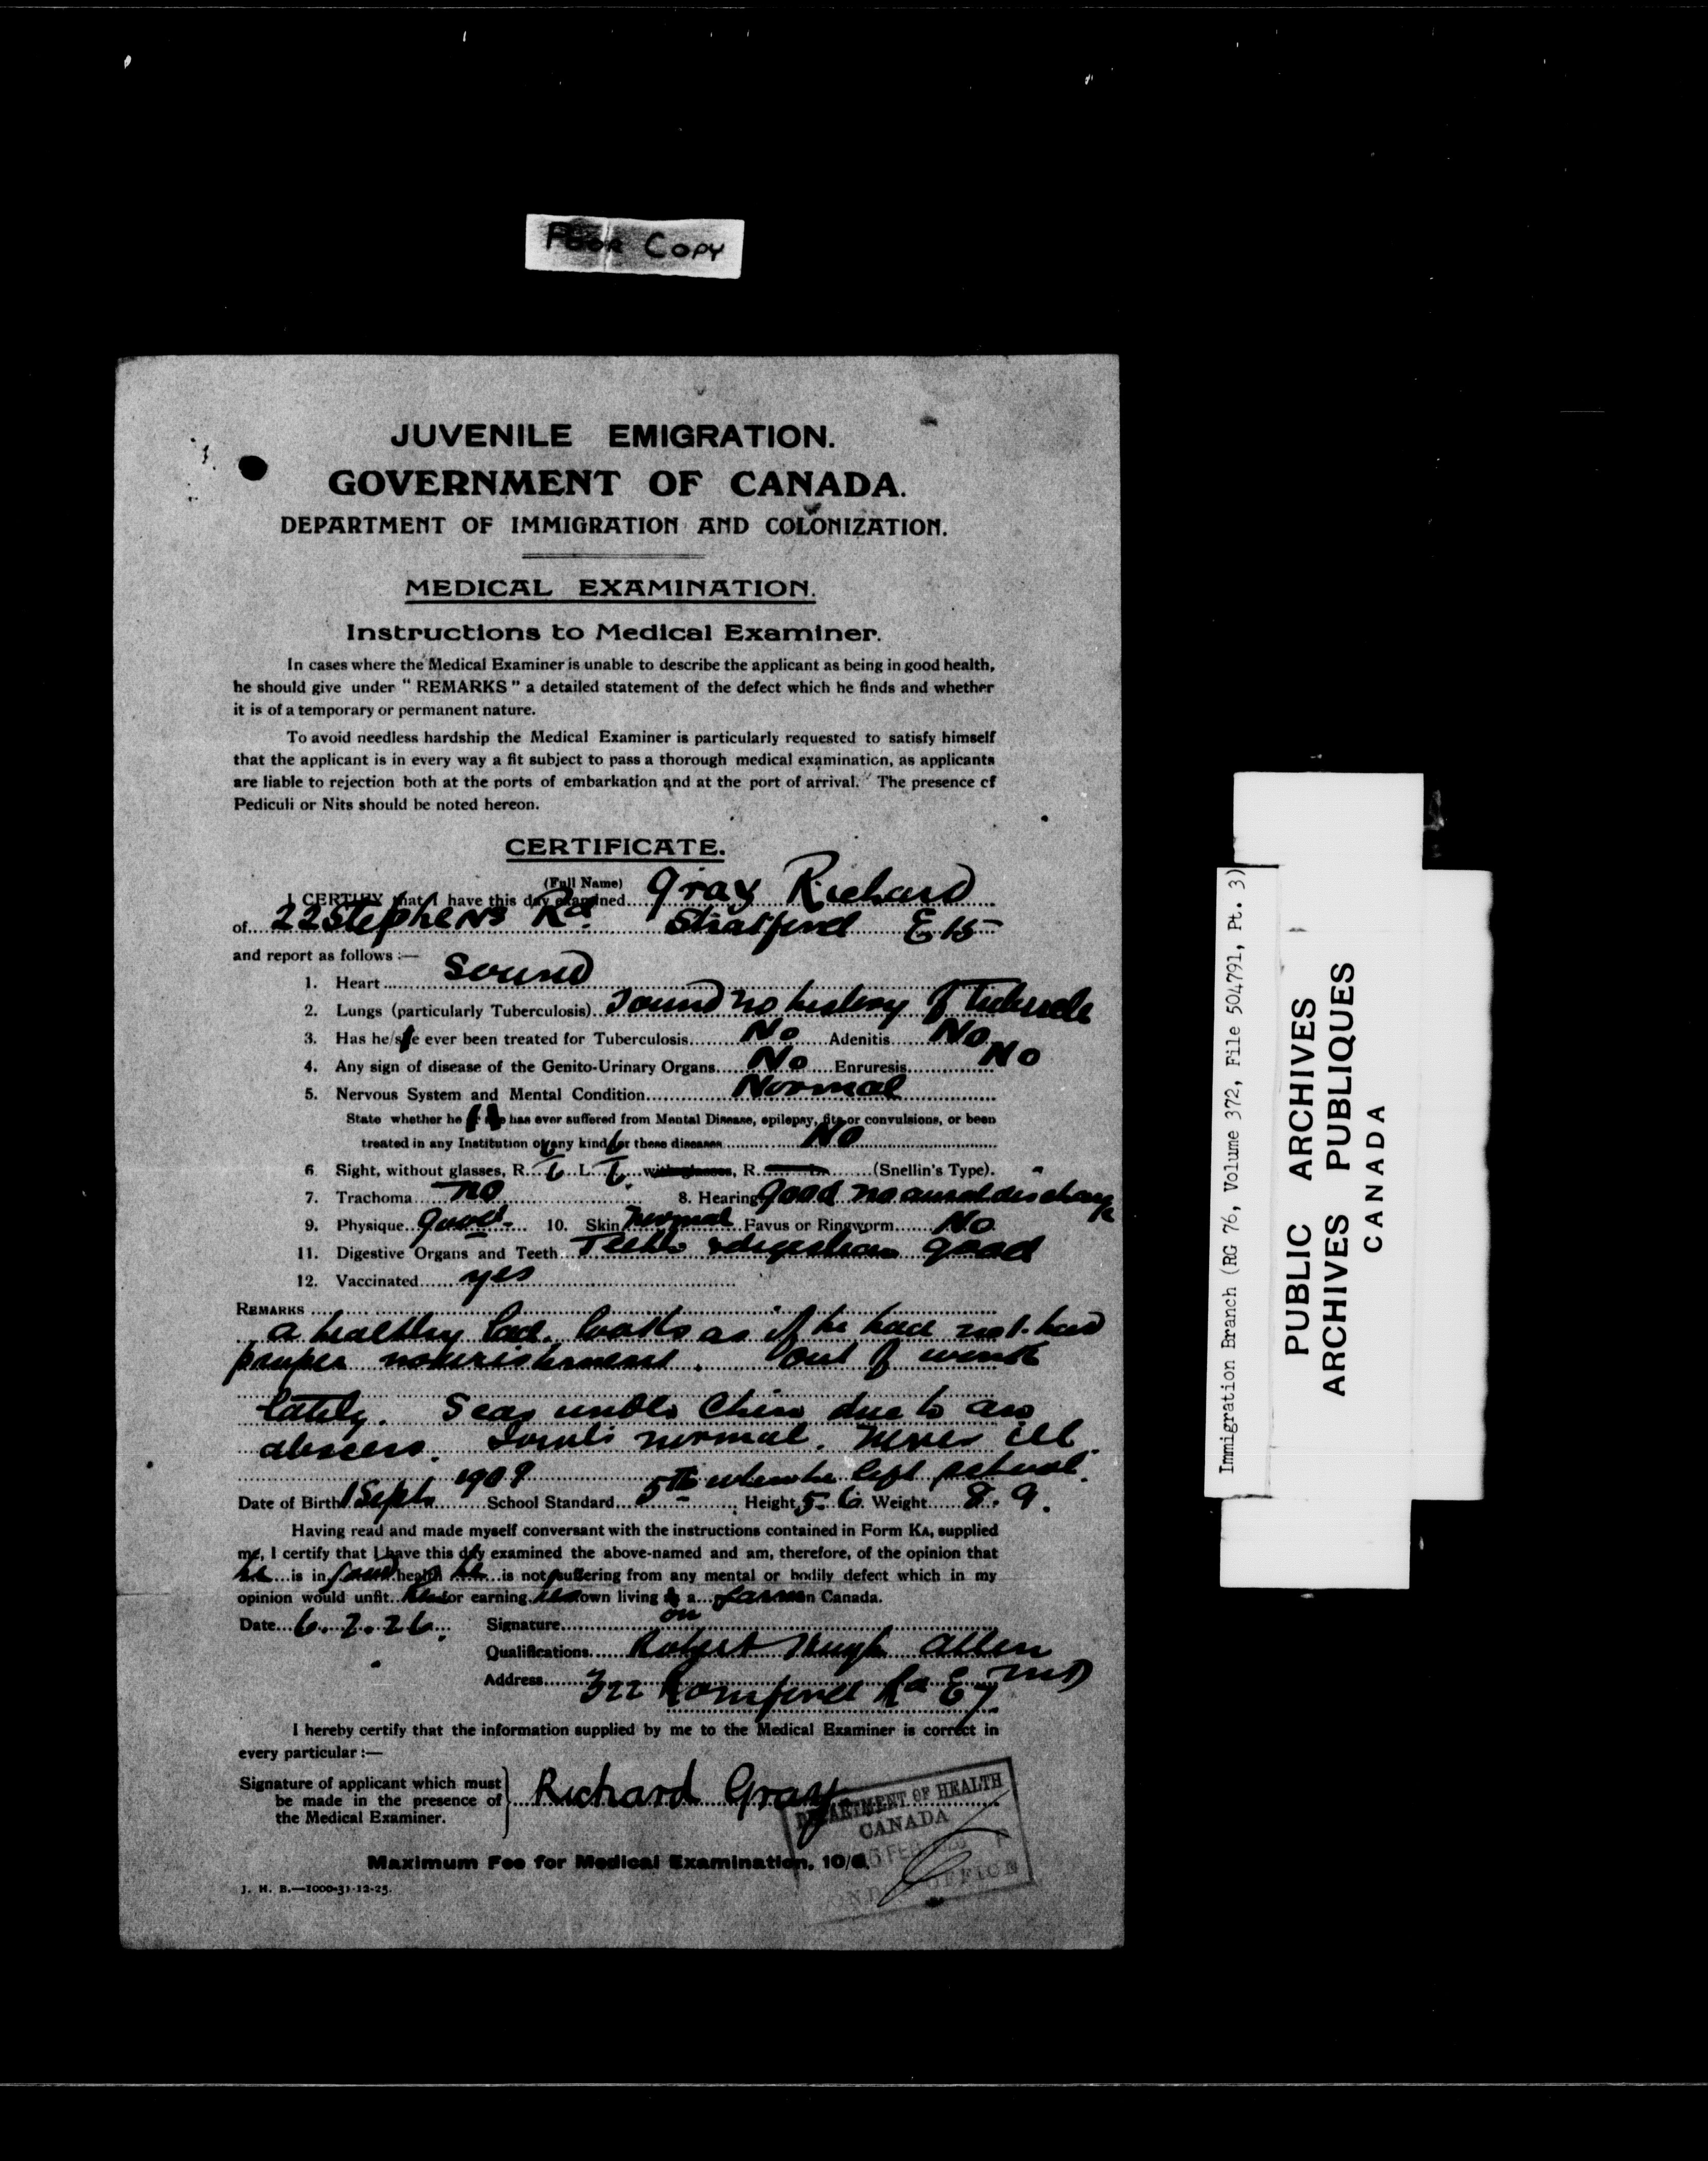 Poor Copy
JUVENILE EMIGRATION.
GOVERNMENT OF CANADA.
DEPARTMENT OF IMMIGRATION AND COLONIZATION.
MEDICAL EXAMINATION.
Instructions to Medical Examiner.
In cases where the Medical Examiner is unable to describe the applicant as being in good health,
he should give under "REMARKS" a detailed statement of the defect which he finds and whether
it is of a temporary or permanent nature.
To avoid needless hardship the Medical Examiner is particularly requested to satisfy himself
that the applicant is in every way a fit subject to pass a thorough medical examination, as applicants
are liable to rejection both at the ports of embarkation and at the port of arrival. The presence of
Pediculi or Nits should be noted hereon.
CERTIFICATE.
(Full Name)
I CERTIFY that I have this day examined Gray Richard
of 22 Stephens Rd. Stratford E 15
and report as follows :—
1. Heart Sound
2. Lungs (particularly Tuberculosis) Sound no history of Tubercle
3. Has he/she ever been treated for Tuberculosis No Adenitis No
4. Any sign of disease of the Genito-Urinary Organs No Enruresis No
5. Nervous System and Mental Condition Normal
State whether he or she has ever suffered from Mental Disease, epilepsy, fits or convulsions, or been
treated in any Institution of any kind for these diseases No
6 Sight, without glasses, R. 6/6 L. 6/6 with glasses, R. (Snellin's Type).
7. Trachoma no 8. Hearing good no aural discharge
9. Physique good. 10. Skin normal Favus or Ringworm No
11. Digestive Organs and Teeth Teeth & digestion good
12. Vaccinated yes
REMARKS
a healthy lad. looks as if he had not had
proper nourishment. Out of work
lately. Scar under Chin due to an
abscess. Joints normal. Never ill.
5th when he left school.
Date of Birth 1 Sept 1909 School Standard Height 5-6 Weight 8. 9.
Having read and made myself conversant with the instructions contained in Form KA, supplied
me, I certify that I have this day examined the above-named and am, therefore, of the opinion that
he is in good health he is not suffering from any mental or bodily defect which in my
opinion would unfit him for earning his own living on a farm in Canada.
Date 6. 2. 26. Signature
Qualifications Robert Hugh Allen
MD
Address 322 Romford Rd E 7
I hereby certify that the information supplied by me to the Medical Examiner is correct in
every particular :—
Signature of applicant which must
be made in the presence of
the Medical Examiner.
Richard Gray
DEPARTMENT OF HEALTH
CANADA
FEB
LONDON OFFICE
Maximum Fee for Medical Examination, 10/6.
J. H. B.—1000-31-12-25.
Immigration Branch (RG 76, Volume 372, File 504791, Pt. 3)
PUBLIC ARCHIVES
ARCHIVES PUBLIQUES
CANADA